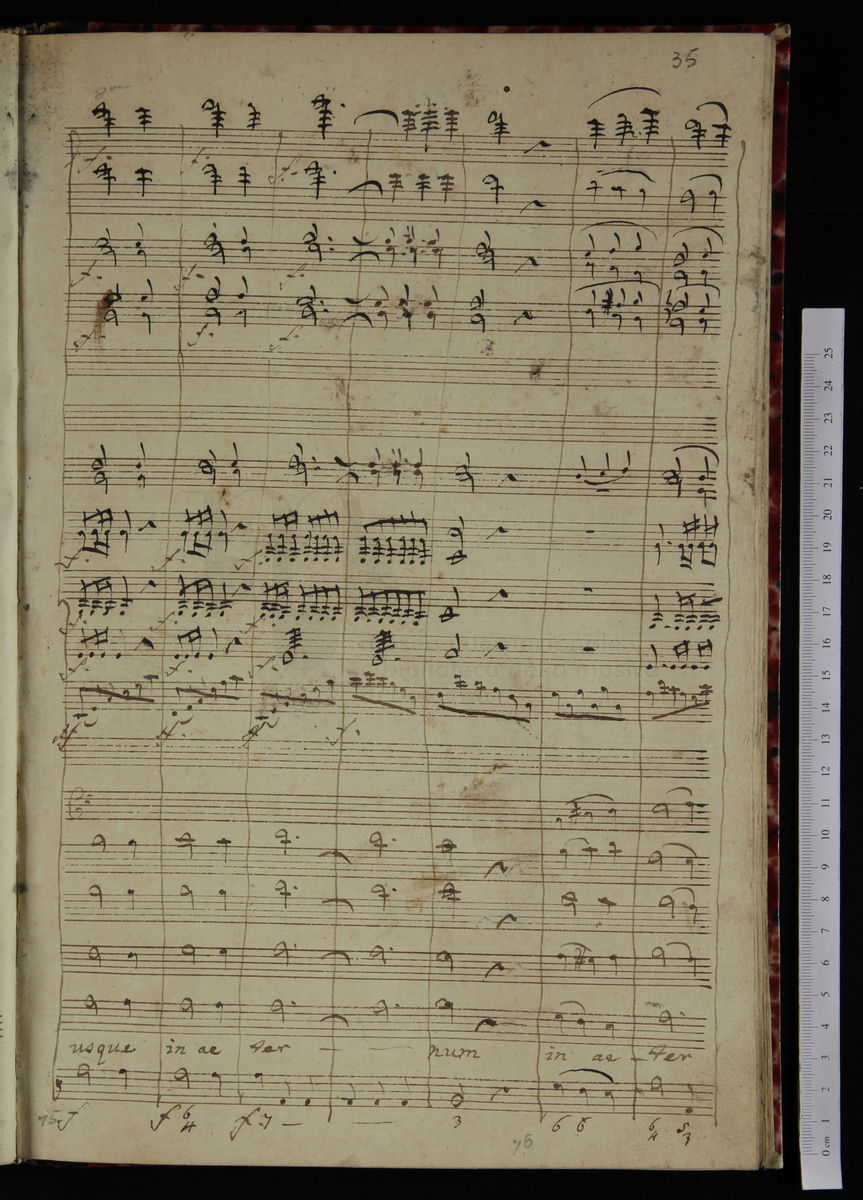 35
8va
f. f. f.
f. f. f.
f. f. f.
f. f. f.
f. f. f. f.
usque in ae ter — — num in ae – ter
f f 6 4 f 7 — — 3 6 6 6 4 5 3
75 76
25
24
23
22
21
20
19
18
17
16
15
14
13
12
11
10
9
8
7
6
5
4
3
2
1
0 cm